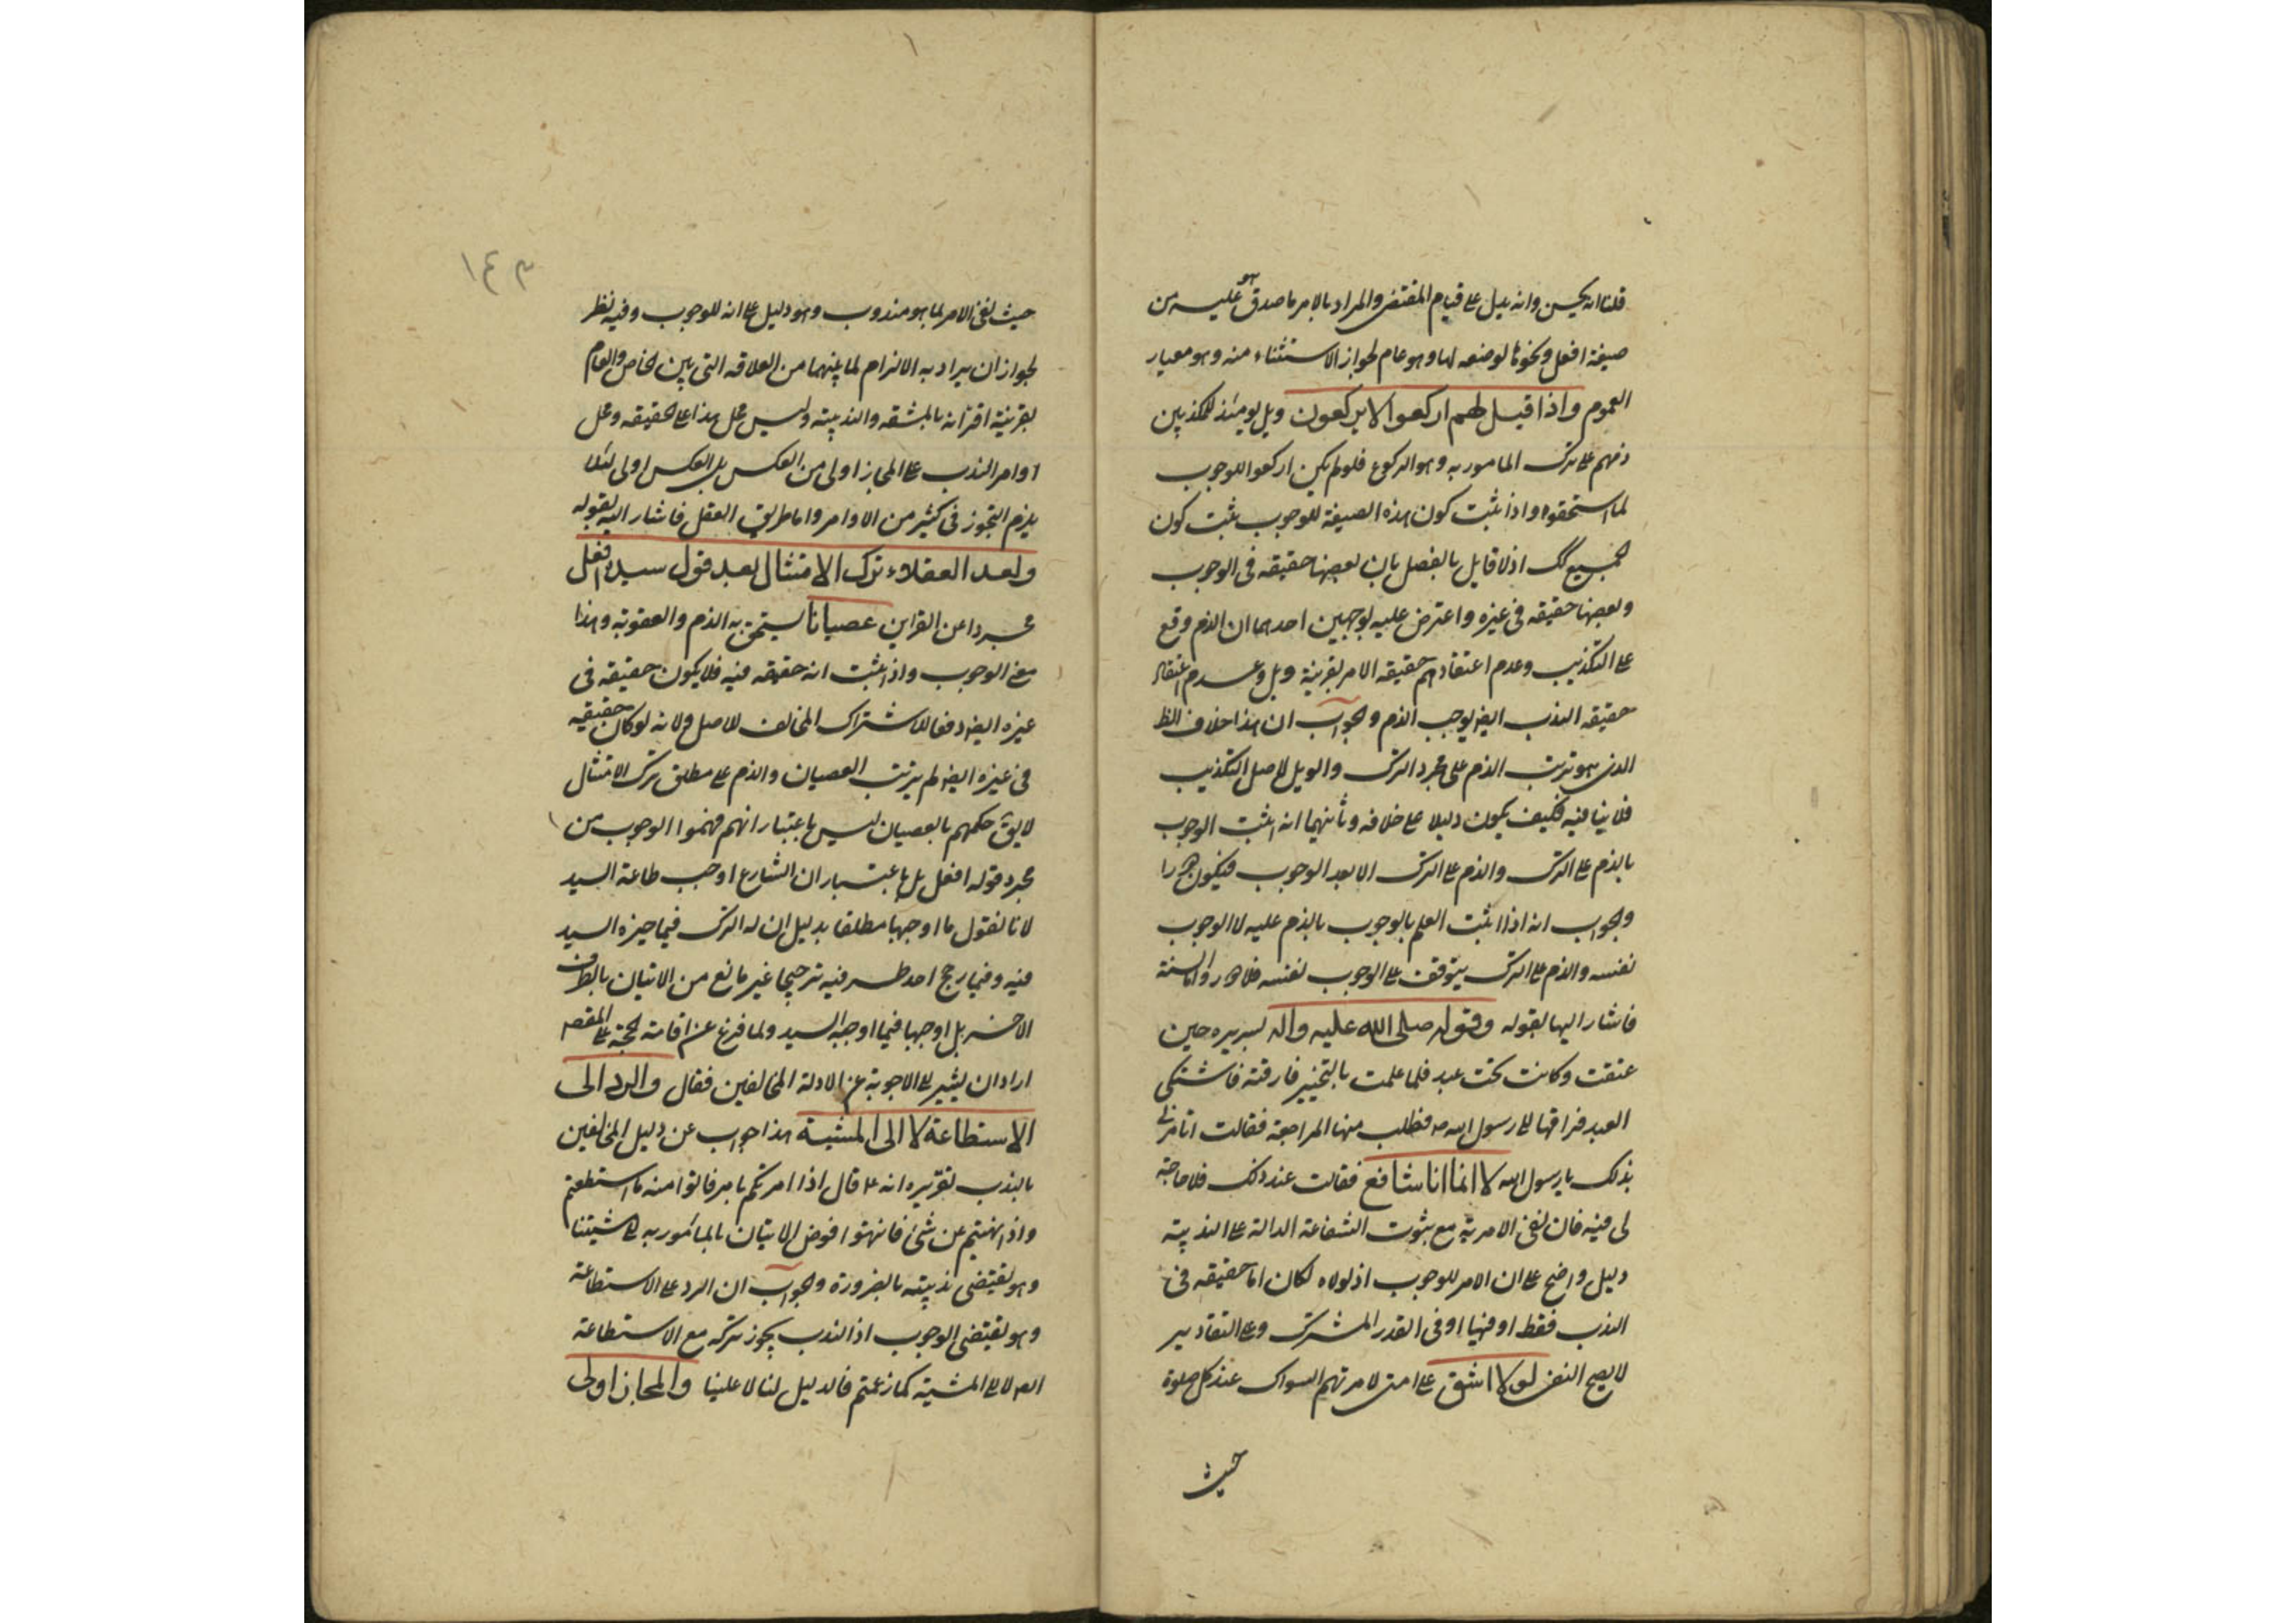 قلنا انه يحسن وانه يدل على قيام المقتضى والمراد بالامر ما صدق هو عليه من
صيغة افعل ونحوها لوضعه لها وهو عام لجواز الاستثناء منه وهو معيار
العموم واذا قيل لهم اركعوا لا يركعون ويل يومئذ للمكذبين
ذمهم على ترك المامور به وهو الركوع فلو لم يكن اركعوا للوجوب
لما استحقوه واذا ثبت كون هذه الصيغة للوجوب ثبت كون
الجميع كك اذ لا قايل بالفصل بان بعضها حقيقه فى الوجوب
وبعضها حقيقه فى غيره واعترض عليه بوجهين احدهما ان الذم وقع
على التكذيب وعدم اعتقادهم حقيقه الامر بقرينة ويل وعدم اعتقاد
حقيقه الندب ايضا يوجب الذم والجواب ان هذا خلاف الظ
الذى هو ترتب الذم على مجرد الترك والويل لاصل التكذيب
فلا ينافيه فكيف يكون دليلا على خلافه وثانيهما انه اثبت الوجوب
بالذم على الترك والذم على الترك لا بعد الوجوب فيكون دورا
والجواب انه اذا اثبت العلم بالوجوب بالذم عليه لا الوجوب
نفسه والذم على الترك يتوقف على الوجوب نفسه فلا دور واما السنة
فاشار اليها بقوله وقوله صلى الله عليه واله لبريره حين
عتقت وكانت تحت عبد فلما علمت بالتخيير فارقته فاشتكى
العبد فراقها الى رسول الله ص فطلب منها المراجعة فقالت اتامرنى
بذلك يا رسول الله لا انما انا شافع فقالت عند ذلك فلا حاجة
لى فيه فان نفى الامر به مع ثبوت الشفاعة الدالة على الندبيته
دليل واضح على ان الامر للوجوب اذ لولاه لكان اما حقيقه فى
الندب فقط او فيها او فى القدر المشترك وعلى التقادير
لا يصح النفى لولا اشق على امتى لامرتهم السواك عند كل صلوة
حيث
١٤٣
حيث نفى الامر لما هو مندوب وهو دليل على انه للوجوب وفيه نظر
لجواز ان يراد به الالزام لما بينهما من العلاقه التى بين الخاص والعام
بقرينة اقترانه بالمشقه والندبيته وليس حمل هذا على الحقيقه وحمل
اوامر الندب على المجاز اولى من العكس بل العكس اولى لئلا
يلزم التجوز فى كثير من الاوامر واما طريق العقل فاشار اليه بقوله
ولعد العقلاء ترك الامتثال بعد قول سيده افعل
مجردا عن القراين عصيانا يستحق به الذم والعقوبة وهذا
معنى الوجوب واذا ثبت انه حقيقه فيه فلا يكون حقيقه فى
غيره ايضا دفعا للاشتراك المخالف للاصل ولانه لو كان حقيقيه
فى غيره ايضا لم يرتب العصيان والذم على مطلق ترك الامتثال
لا يق حكمهم بالعصيان ليس باعتبار انهم فهموا الوجوب من
مجرد قوله افعل بل باعتبار ان الشارع اوجب طاعة السيد
لانا نقول ما اوجبها مطلقا بدليل ان له الترك فيما خيره السيد
فيه وفيما رجح احد طرفيه ترجيحا غير مانع من الاتيان بالطرف
الاخر بل اوجبها فيما اوجبه السيد ولما فرغ عن اقامة الحجة على المقصد
اراد ان يشير الى الاجوبة عن الادلة المخالفين فقال والرد الى
الاستطاعة لا الى المشية هذا جواب عن دليل المخالفين
بالندب تقريره انه ع قال اذا امرتكم بامر فاتوا منه ما استطعتم
واذا نهيتم عن شئ فانتهوا فوض الاتيان بالمأمور به الى مشيتنا
وهو يقتضى ندبيته بالضرورة والجواب ان الرد على الاستطاعة
وهو يقتضى الوجوب اذ الندب يجوز تركه مع الاستطاعة
لا الى المشية كما زعمتم فالدليل لنا لا علينا والمجاز اولى